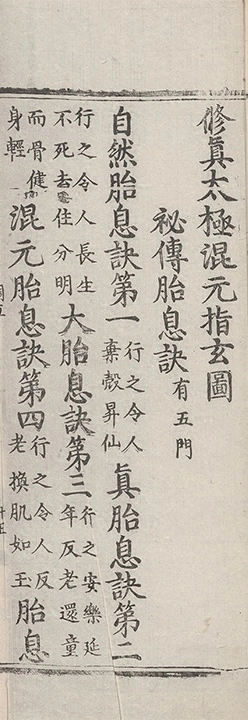 修眞太極混元指玄圖
祕傳胎息訣有五門
自然胎息訣第一行之令人棄殼昇仙眞胎息訣第二
行之令人長生不死去住分明大胎息訣第三行之安樂延年反老還童
行之令人而骨健身輕混元胎息訣第四行之令人反老換肌如玉胎息